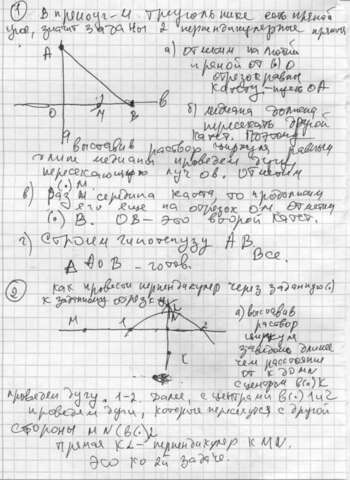 ① В прямоуг-м треугольнике есть прямой
угол, значит заданы 2 перпендикулярные прямые
A
а) отметим на любой
прямой от (·) O
отрезок равный
катету - пусть OA
O M B B
б) медиана должна
пересекать другой
катет. Поэтому
выставив раствор циркуля равным
длине медианы проведем дугу,
пересекающую луч OB. Отметим
(·) M
в) Раз M середина катета, то продолжим
его еще на отрезок OM отметим
(·) B. OB - это второй катет.
г) Строим гипотенузу AB
Все.
Δ AOB - готов.
② как провести перпендикуляр через заданную (·)
к заданному отрезку
M 1 2
K
а) выставив
раствор
циркуля
заведомо длиннее
чем расстояние
от K до MN
с центром в (·) K
проведем дугу. 1-2. Далее, с центрами в (·) 1 и 2
проведем дуги, которые пересекутся с другой
стороны MN (в (·) L
Прямая KL - перпендикуляр к MN.
Это ко 2й задаче.